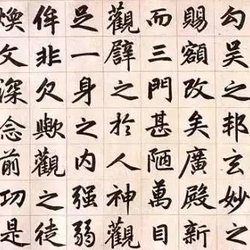 勾吳之邦玄妙之
賜額改矣廣殿新
而三門甚陋萬目
觀譬之於人神觀
足一身之内强弱
侔非欠歟觀之徒
煥文深念前功是